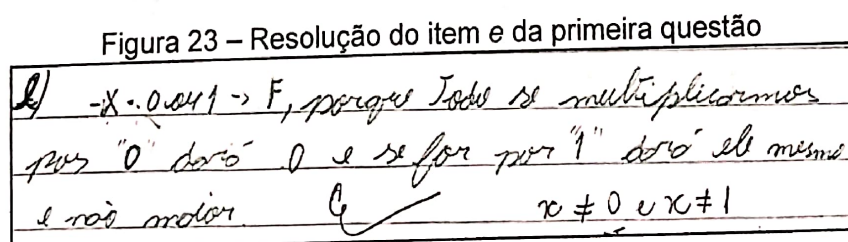 Figura 23 – Resolução do item e da primeira questão
e) -X. 0 ou 1 -> F, porque Todo se multiplicarmos
por "0" dará 0 e se for por "1" dará ele mesmo
e não maior. C x ≠ 0 e x ≠ 1